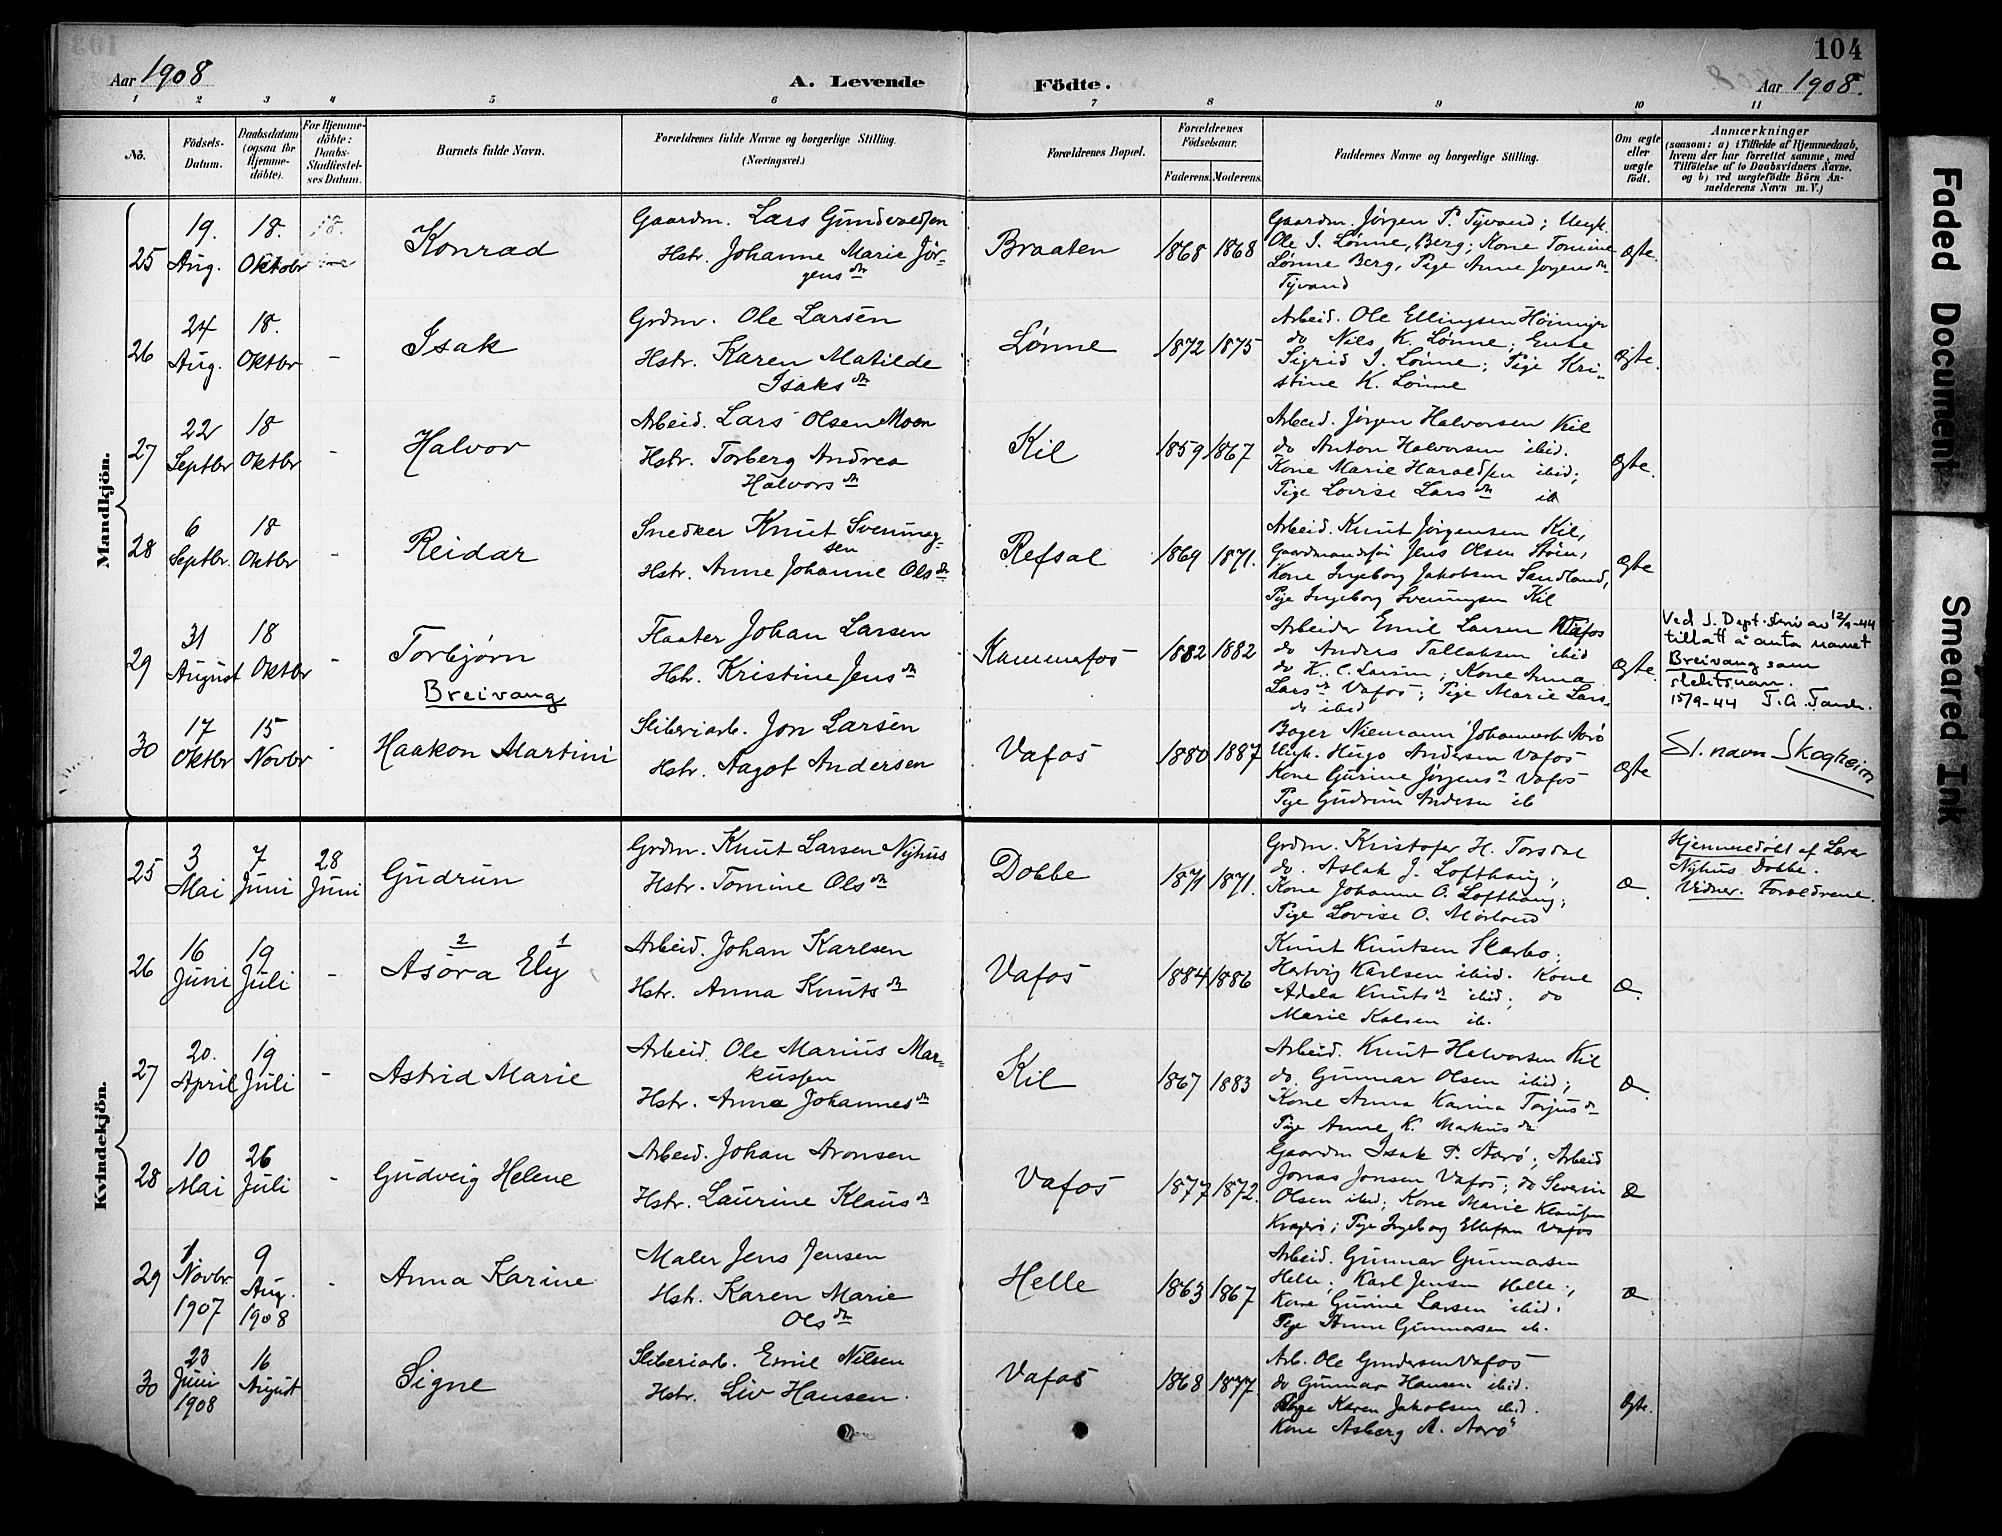 104
Aar 1908
A. Levende Födte.
Aar 1908.
1 2 3 4 5 6 7 8 9 10 11
No.
Födsels-Datum.
Daabsdatum (ogsaa for Hjemme-döbte).
For Hjemme-döbte: Daabs-Stadfæstel-ses Datum.
Barnets fulde Navn.
Forældrenes fulde Navne og borgerlige Stilling. (Næringsvei.)
Forældrenes Bopæl.
Forældrenes Födselsaar.
Faderens. Moderens.
Faddernes Navne og borgerlige Stilling.
Om ægte eller uægte födt.
Anmærkninger
(saasom: a) i Tilfælde af Hjemmedaab, hvem der har forrettet samme, med Tilföielse af to Daabsvidners Navne, og b) ved uægtefödte Börn An-melderens Navn m. V.)
Mandkjön.
25
19. Aug.
18. Oktobr
Konrad
Gaardm. Lars Gundvaldsen
Hstr. Johanne Marie Jör-
gensdtr
Braaten
1868 1868
Gaardm. Jørgen P. Tyvand; Ungk.
Ole I. Lønne, Berg; Kone Tomine
Lønne Berg, Pige Anne Jørgensdtr
Tyvand
Ægte.
26
24 Aug.
18. Oktbr
-
Isak
Grdm. Ole Larsen
Hstr. Karen Matilde
Isaksdtr
Lønne
1872 1875
Arbeid. Ole Ellingsen
do Nils K. Lønne; Enke
Sigrid I. Lønne; Pige Kri-
stine K. Lønne
Ægte.
27
22 Septbr
18 Oktbr
-
Halvor
Arbeid. Lars Olsen Moen
Hstr. Torberg Andrea
Halvorsdtr
Kil
1859 1867
Arbeid. Jørgen Halvorsen Kil
do Anton Halvorsen ibid.
Kone Marie Haraldsen ibid;
Pige Lovise Larsdtr ib
Ægte.
28
6 Septbr.
18 Oktbr
-
Reidar
Snedker Knut Svenung-
sen
Hstr. Anne Johanne Olsdtr
Refsal
1869 1871.
Arbeid. Knut Jørgensen Kil,
Jens Olsen Støen,
Kone Ingeborg Jakobsen Sandland,
Pige Ingeborg Svenungsen Kil
Ægte
29
31 August
18 Oktbr
-
Torbjørn
Breivang
Flaater Johan Larsen
Hstr. Kristine Jensdtr
Kammefos
1882 1882
Arbeider Emil Larsen Vafos
do Anders Tallaksen ibid
do K. C. Larsen; Kone Anna
Larsdtr Vafos; Pige Marie Lars-
dtr ibid
Ægte.
Ved J. Dept. skriv av 12/9-44
tillatt å anta navnet
Breivang som
slektsnavn.
15/9-44
30
17 Oktbr
15 Novbr
-
Haakon Martini
Sliberiarb. Jon Larsen
Hstr. Aagot Andersen
Vafos
1880 1887
Bager Niemann Johannesen Aarø
Ungk. Hugo Andersen Vafos
Kone Gurine Jørgensdtr Vafos
Pige Gudrun Andersen ib
Ægte
Sl. navn Skogheim
Kvindekjön.
25
3 Mai
7 Juni
28 Juni
Gudrun
Grdm. Knut Larsen Nyhus
Hstr. Tomine Olsdtr
Dobbe
1871 1871.
Grdm. Kristofer H. Torsdal
do. Aslak J. Lofthaug;
Kone Johanne O. Lofthaug;
Pige Lovise O. Mørland
Æ.
Hjemmedøbt af Lærer
Nyhus Dobbe.
Vidner. Forældrene.
26
16 Juni
19 Juli
-
2 1
Asora Ely
Arbeid. Johan Karlsen
Hstr. Anna Knutsdtr
Vafos
1884 1886
Knut Knutsen Skarbo;
Hertvig Karlsen ibid. Kone
Adela Knutsdtr ibid; do
Marie Kalsen ib.
Æ.
27
20. April
19 Juli
-
Astrid Marie
Arbeid. Ole Marius Mar-
kussen
Hstr. Anna Johannesdtr
Kil
1867 1883
Arbeid. Knut Halvorsen Kil
do. Gunnar Olsen ibid;
Kone Anna Karina Torjusdtr
Pige Anne K. Markusdtr
Æ.
28
10 Mai
26 Juli
-
Gudveig Helene
Arbeid. Johan Aronsen
Hstr. Laurine Klausdtr
Vafos
1877 1872.
Gaardm Isak P. Aarø; Arbeid
Jonas Jonsen Vafos; do Severin
Olsen ibid; Kone Marie Klausen
Kragerø; Pige Ingeborg Ellefsen Vafos
Æ
29
1 Novbr. 1907
9 Aug. 1908
-
Anna Karine
Maler Jens Jensen
Hstr. Karen Marie
Olsdtr
Helle
1863 1867
Arbeid. Gunnar Gunnarsen
Helle; Karl Jensen Helle;
Kone Gurine Larsen ibid.
Pige Anne Gunnarsen ib.
Æ
30
23 Juni 1908
16 August
Signe
Sliberiarb. Emil Nilsen
Hstr. Liv Hansen.
Vafos
1868 1877.
Arb. Ole Gundersen Vafos
do Gunnar Hansen ibid.
Pige Karen Jakobsen ibid.
Kone Asberg A. Aarø
Ægte.
Faded Document
Smeared Ink